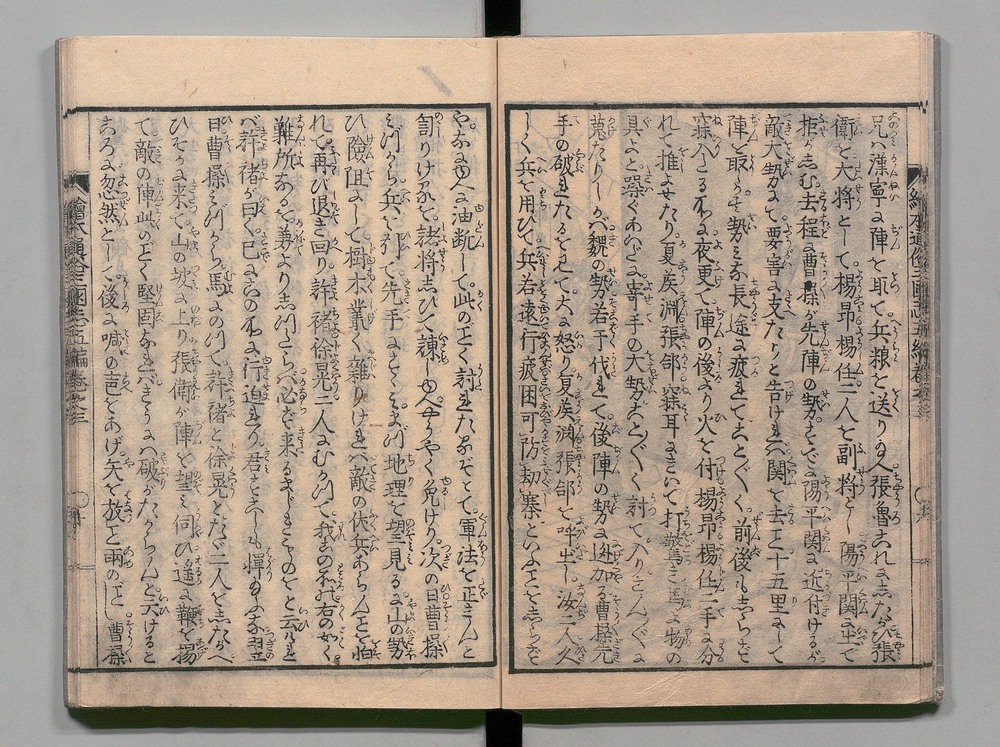 兄ハ漢寧に陣を取て兵粮を送り給へ張魯これにしたがひ張
衛を大将として楊昂楊任二人を副将とし陽平関に出て
拒がしむ去程に曹操が先陣の勢すでに陽平関に近付けるが
敵大勢にて要害に支たりと告けれバ関を去こと十五里にして
陣を取るその勢ミな長途に疲れてことごとく前後もしらず
寐入たる所に夜更て陣の後より火を付楊昂楊任二手に分
れて推よせたり夏侯淵張郃寐耳に水にて打驚き馬よ物の
具よと躁ぐあひだに寄手の大勢ことごとく討て入りさんざんに
蒐たりしかバ魏の勢若干代れて後陣の勢に迯加る曹操先
手の破れたるを見て大に怒り夏侯淵張郃を呼出し汝二人久
しく兵を用ひて兵若遠行疲困可防劫寨といふことをしらず
や なに油断して此のごとく討れたるぞとて軍法を正さんと
訇りけるを諸将しひて諫しかバやうやく免けり次の日曹操
ミづから兵を引て先手にすすミまづ地理を望見るに山の勢
ひ険阻にして樹木叢く雑りけれバ敵の伏兵あらんことを怕
れて再び退き回り許褚徐晃二人にむかつて我この所右の如く
難所なるを兼よりしつたらバ必ず来るまじきものをと云けれ
バ許褚が曰く已にこの所に行迫れり君すこしも憚り給ふな翌
日曹操ミづから馬にのつて許褚と徐晃とただ二人をしたがへ
ひそかに来て山の坡に上り張衛が陣を望ミ伺ひ遥に鞭を揚
て敵の陣此のごとく堅固なれバきうに破がたからんと云ける
ところに忽然として後に喊の声をあげ矢を放こと雨のごとし曹操